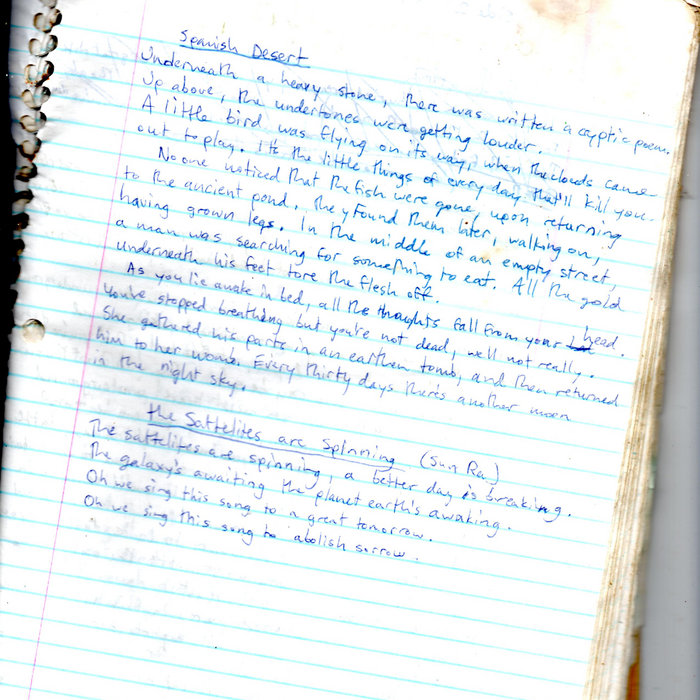 Spanish Desert
Underneath a heavy stone, there was written a cryptic poem.
Up above, the undertones were getting louder.
A little bird was flying on its way, when the clouds came
out to play. It's the little things of every day that'll kill you.
No one noticed that the fish were gone, upon returning
to the ancient pond. They found them later, walking on,
having grown legs. In the middle of an empty street,
a man was searching for something to eat. All the gold
underneath his feet tore the flesh off.
As you lie awake in bed, all the thoughts fall from your head.
You've stopped breathing but you're not dead, well not really.
She gathered his parts in an earthen tomb, and then returned
him to her womb. Every thirty days there's another moon
in the night sky.
the Sattelites are Spinning (Sun Ra)
The sattelites are spinning, a better day is breaking.
The galaxy's awaiting the planet earth's awaking.
Oh we sing this song to a great tomorrow.
Oh we sing this song to abolish sorrow.